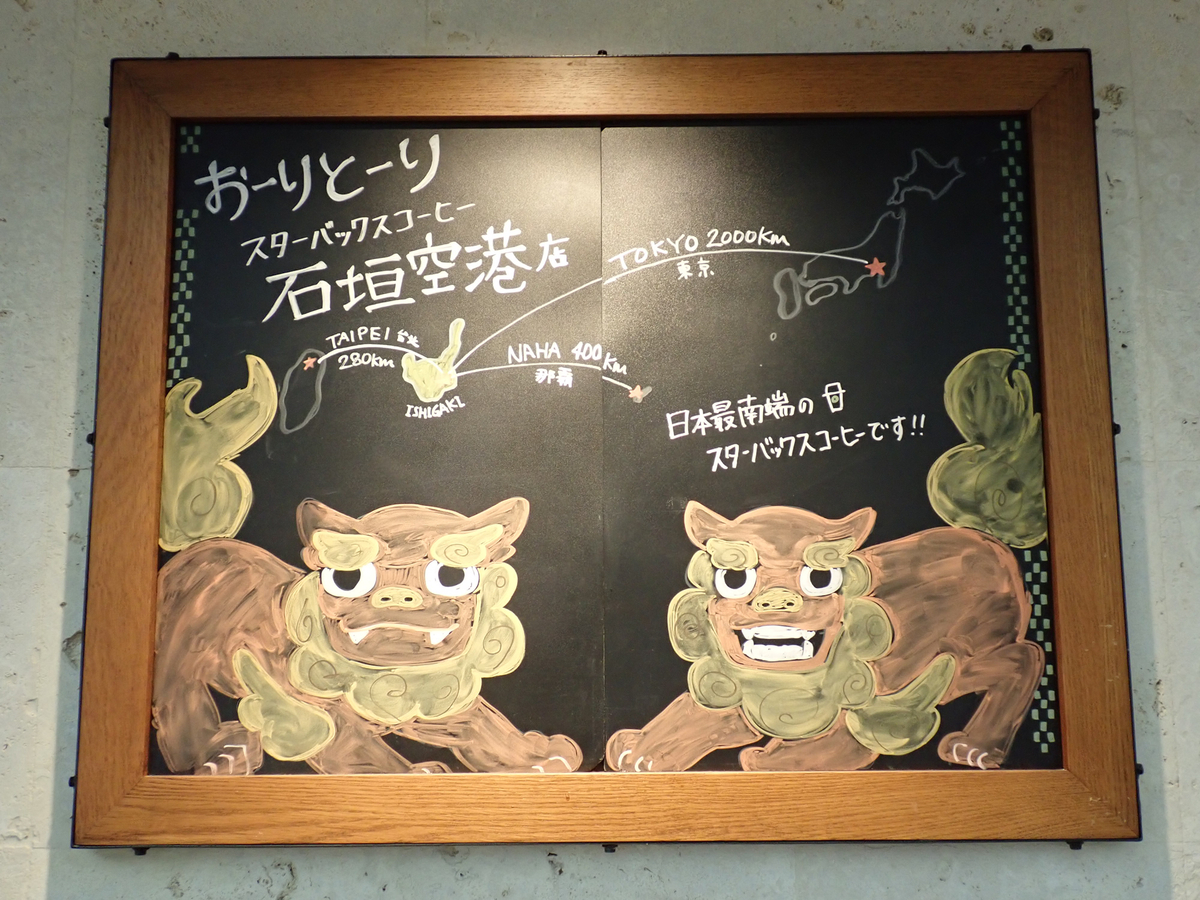 おーりとーり
スターバックスコーヒー
石垣空港店
TOKYO 2000Km
東京
TAIPEI 台北
280Km
NAHA 400Km
那覇
ISHIGAKI
日本最南端の
スターバックスコーヒーです!!